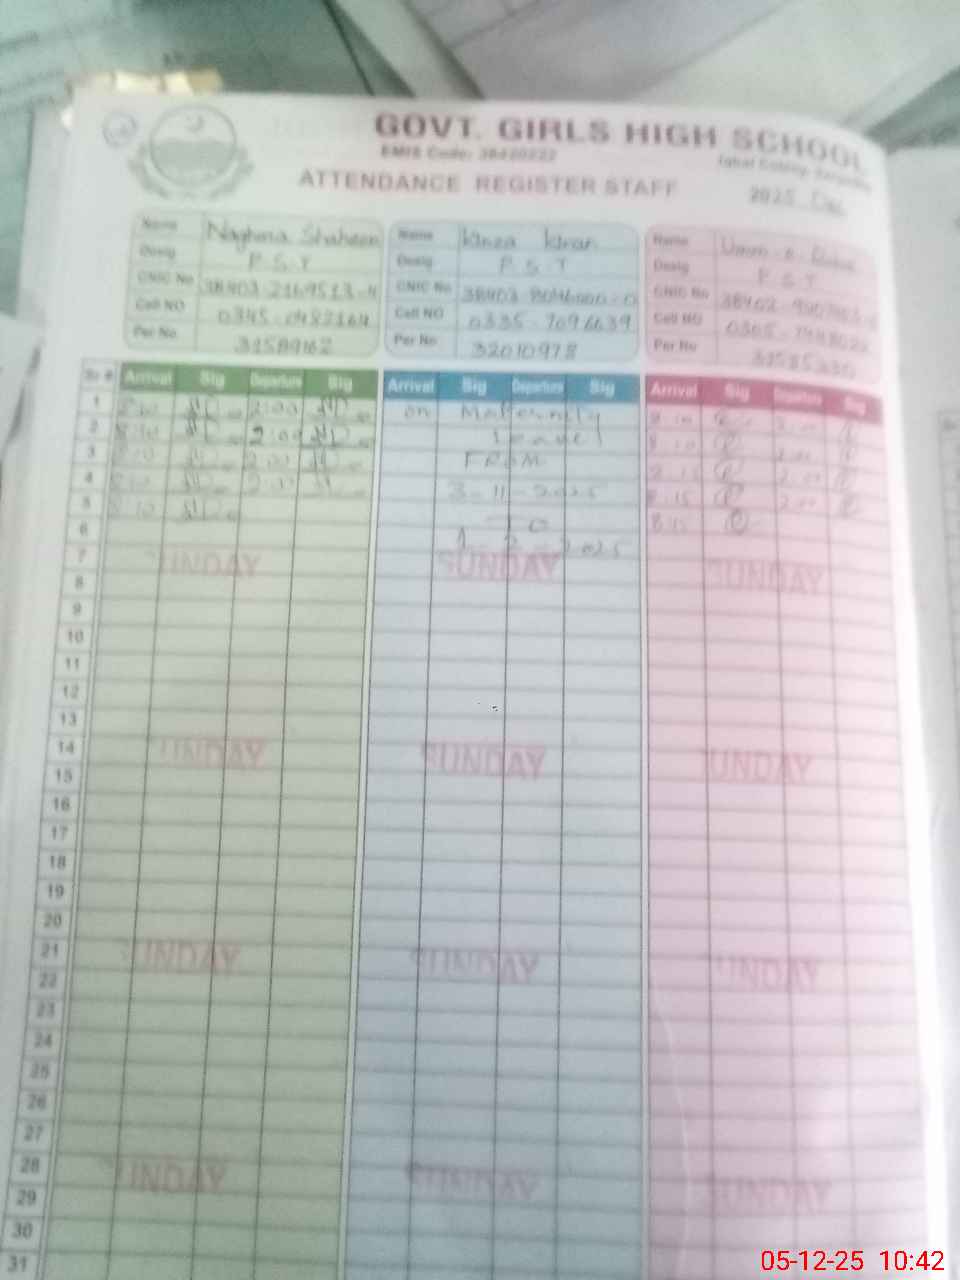 GOVT. GIRLS HIGH SCHOOL
EMIS Code: 38420222
Iqbal Colony, Sargodha
ATTENDANCE REGISTER STAFF
2025 Dec
Name Naghma Shaheen
Desig P.S.T
CNIC No 38403-2169513-4
Cell NO 0345-0482164
Per No 31589162
Name Kinza Kiran
Desig P.S.T
CNIC No 38403-8046000-0
Cell NO 0335-7096639
Per No 32010978
Name Umm-e
Desig P.S.T
CNIC No
Cell NO
Per No
Sr # Arrival Sig Departure Sig Arrival Sig Departure Sig Arrival Sig Departure Sig
1 8:10 2:00 on Maternity 8:10 2:00
2 8:10 2:00 Leave 8:10 2:00
3 8:10 2:00 FROM 8:15 2:00
4 8:10 2:00 3-11-2025 8:15 2:00
5 8:10 TO 8:10
6 1-2-2025
7 SUNDAY SUNDAY SUNDAY
8
9
10
11
12
13
14 SUNDAY SUNDAY SUNDAY
15
16
17
18
19
20
21 SUNDAY SUNDAY SUNDAY
22
23
24
25
26
27
28 SUNDAY SUNDAY SUNDAY
29
30
31
05-12-25 10:42